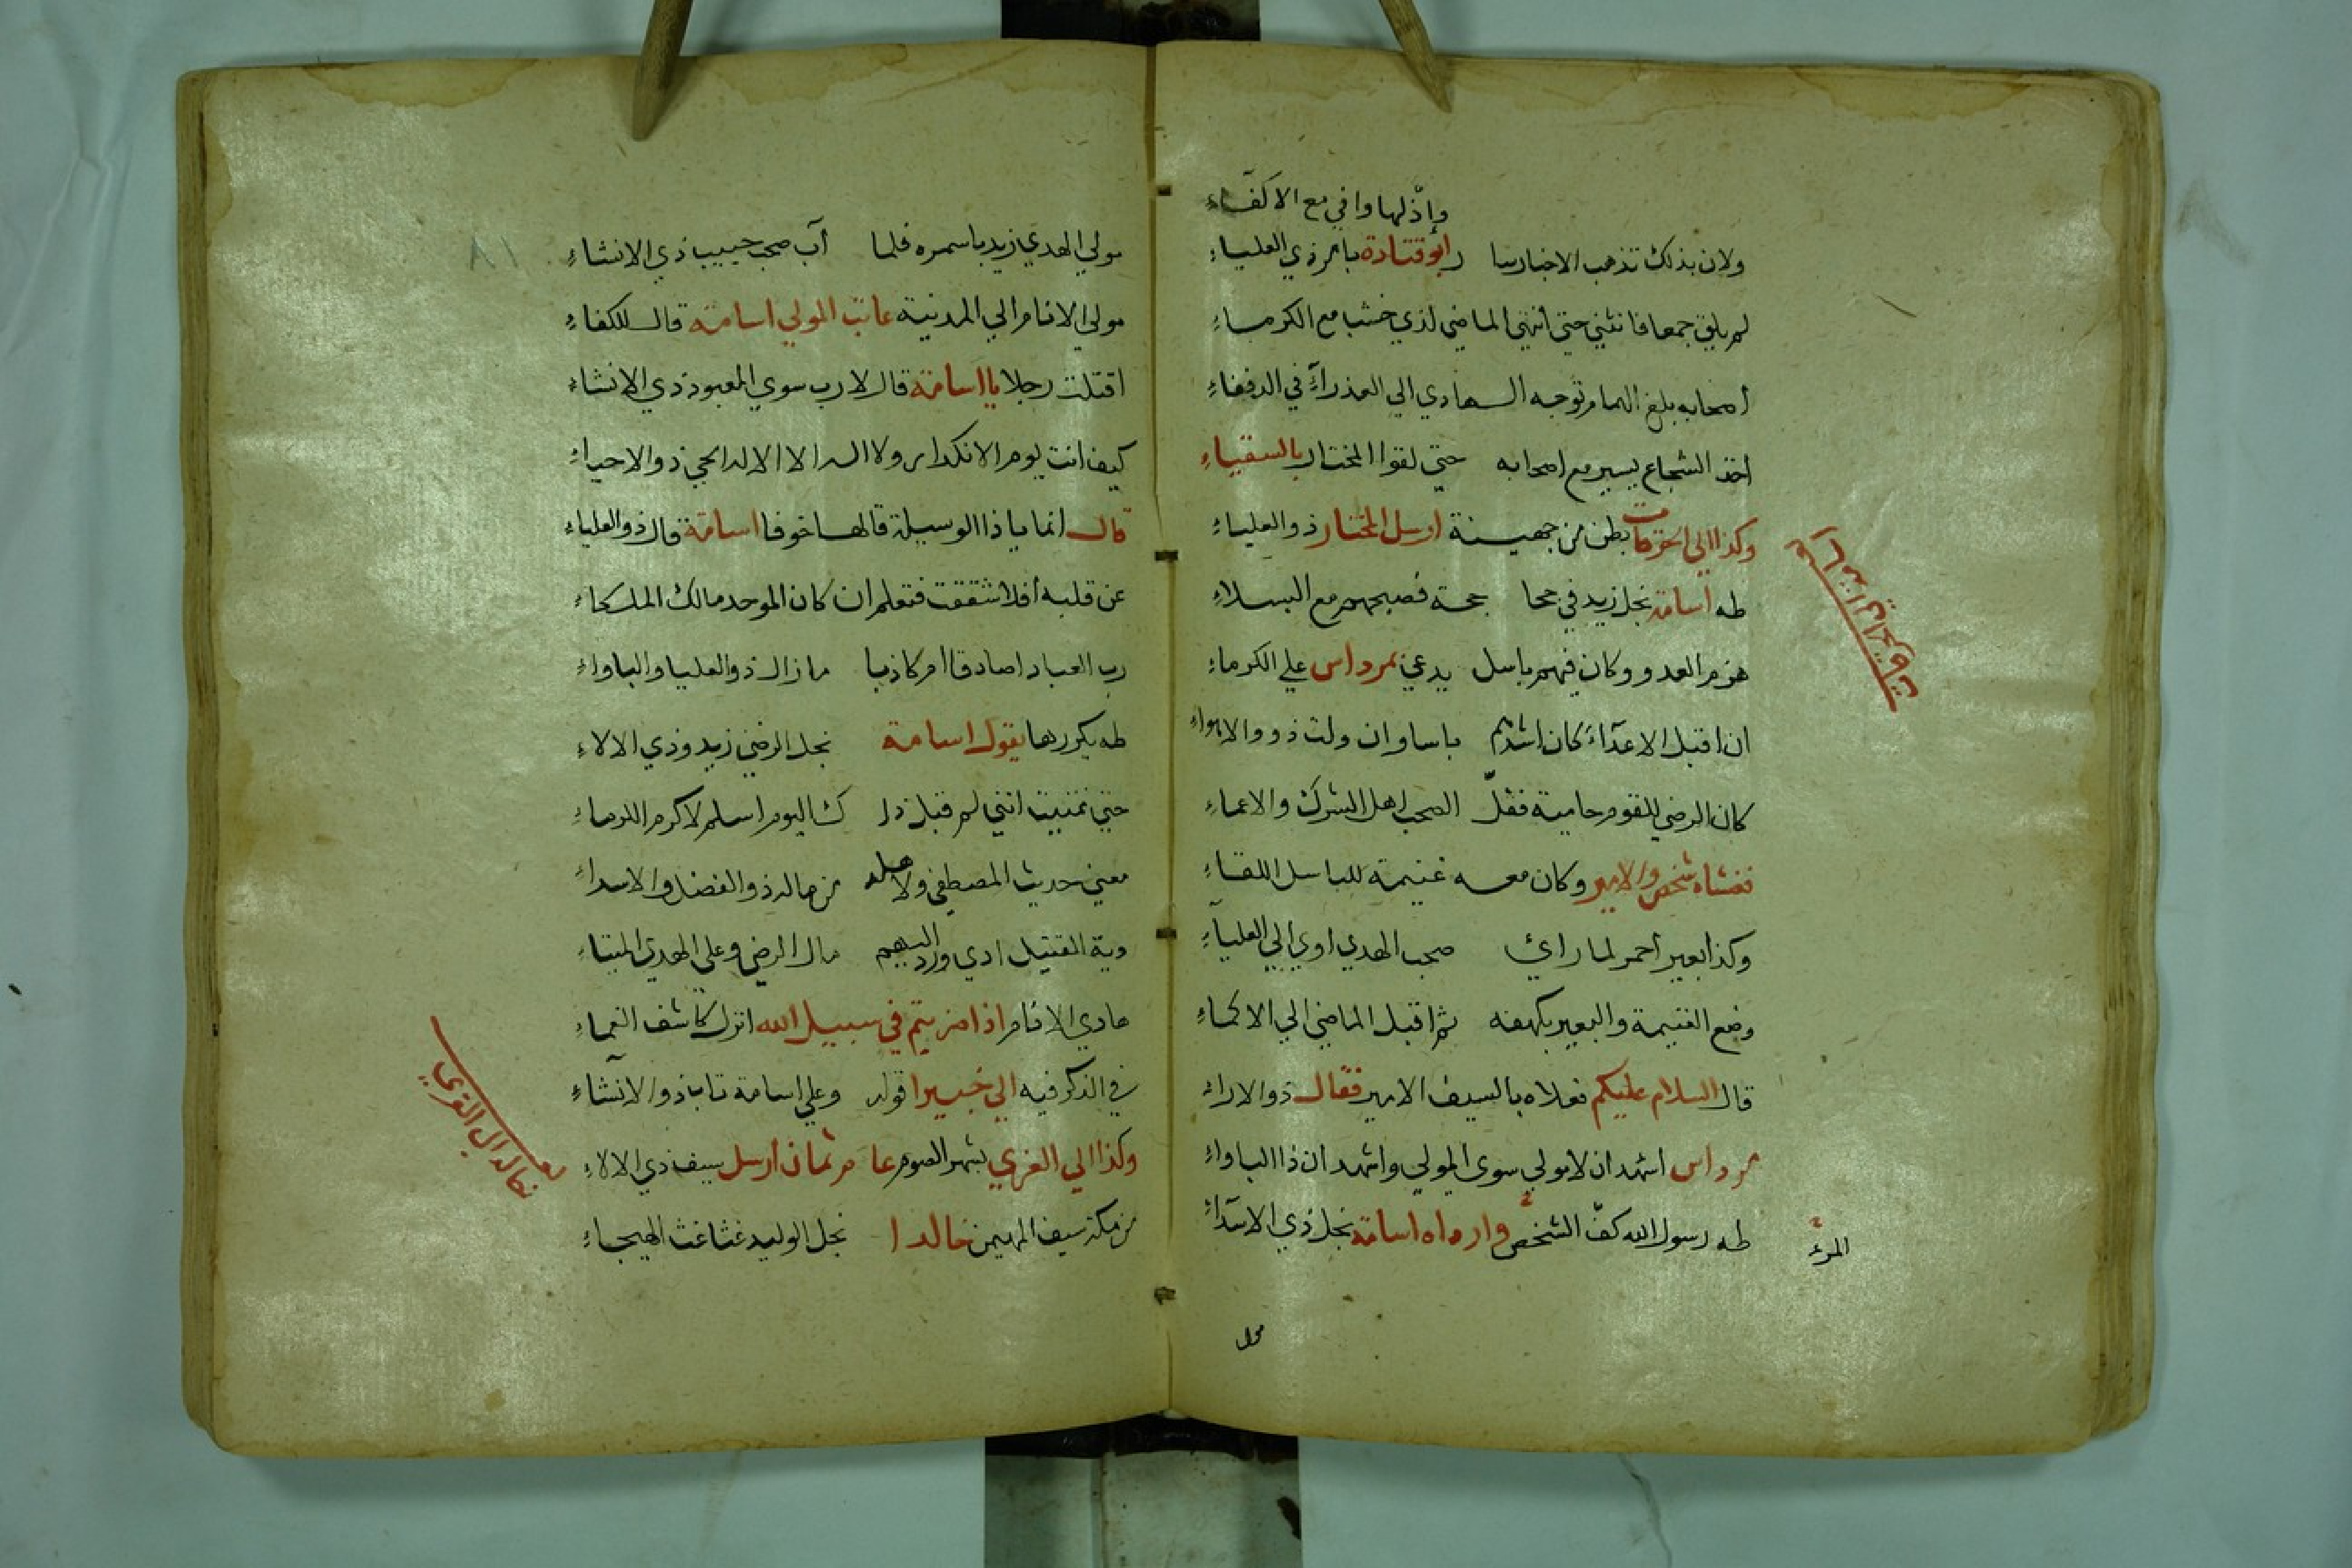 وإذ لها وافي مع الاكفاء
ولان بذلك تذهب الاخبار سا ر ابو قتادة بامر ذي العلياء
لم يلق جمعا فانثني حتي انتهي الماضي لذي خشب مع الكرماء
أصحابه بلغ الهمام توجه الهادي الي العذراء في الدفعاء
أخذ الشجاع يسير مع اصحابه حتي لقوا المختار بالسقياء
وكذا الي الحرقات بطن من جهينة ارسل المختار ذو العلياء
طه اسامة نجل زيد في جحا جحة فصبحهم مع البسلاء
هزم العدو وكان فيهم باسل يدعي بمرداس علي الكرماء
ان اقبل الاعداء كان اشدهم باسا وان ولت ذوو الاهواء
كان الرضي للقوم حامية ففل الصحب اهل الشرك والاعماء
فغشاه شخص والامير وكان معه غنيمة للباسل اللقاء
وكذا بعير أحمر لما رائ صحب الهدي اوي الي العلياء
وضع الغنيمة والبعير بكهفه ثم اقبل الماضي الي الاكماء
قال السلام عليكم فعلاه بالسيف الامير فقال ذو الاراء
مرداس اشهد ان لا مولي سوي المولي واشهد ان ذا الباواء
طه رسول الله كف الشخص وارداه اسامة نجل ذي الاسداء
المرء
سرية الحرقات
مولي الهدي زيد باسمره فلما آب صحب حبيب ذي الانشاء
مولي الانام الي المدينة عاتب المولي اسامة قال للكفاء
اقتلت رجلا يا اسامة قال لا رب سوي المعبود ذي الانشاء
كيف انت يوم الانكدار ولا اله الا الاله الحي ذو الاحياء
قال انما يا ذا الوسيلة قالها خوفا اسامة قال ذو العلياء
عن قلبه أفلا شققت فتعلم ان كان الموحد مالك الملكاء
رب العباد اصادقا ام كاذبا ما زال ذو العليا والباواء
طه يكررها يقول اسامة نجل الرضي زيد وذي الالاء
حتي تمنيت انني لم قبل ذا ك اليوم اسلم لاكرم الكرماء
معني حديث المصطفي ولاهله من ماله ذو الفضل والاسداء
دية القتيل ادي ورد اليهم مال الرضي وعلي الهدي المبتاء
هادي الانام اذا ضربتم في سبيل الله انزل كاشف الغماء
في الذكر فيه الي خبيرا قوله وعلي اسامة تاب ذو الانشاء
وكذا الي العزي بشهر الصوم عا م ثمان ارسل سيف ذي الالاء
من مكة سيف المهيمن خالدا نجل الوليد غثا غث الهيجاء
٨١